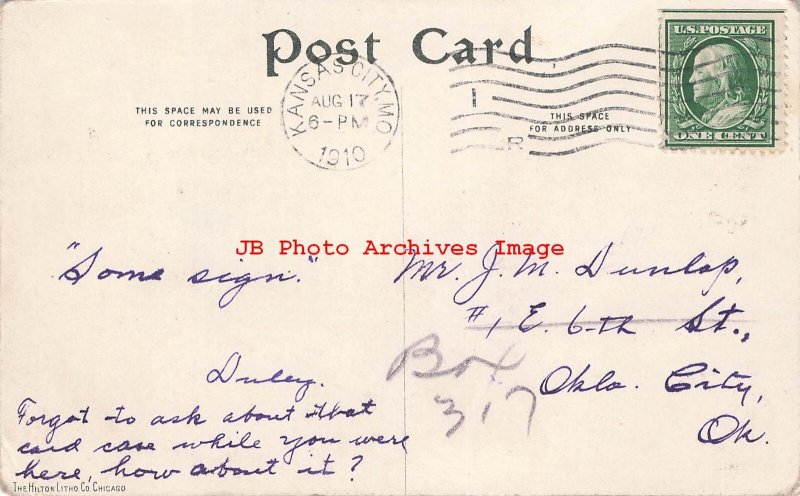 Post Card
KANSAS CITY, MO.
AUG 17
6-PM
1910
U.S. POSTAGE
ONE CENT
1
R
THIS SPACE MAY BE USED
FOR CORRESPONDENCE
THIS SPACE
FOR ADDRESS ONLY
JB Photo Archives Image
"Some sign."
Duley.
Forgot to ask about that
card case while you were
here, how about it?
Mr. J. M. Dunlap,
#1 E. 6-th St.,
Box
317
Okla. City,
Ok.
THE HILTON LITHO. CO. CHICAGO